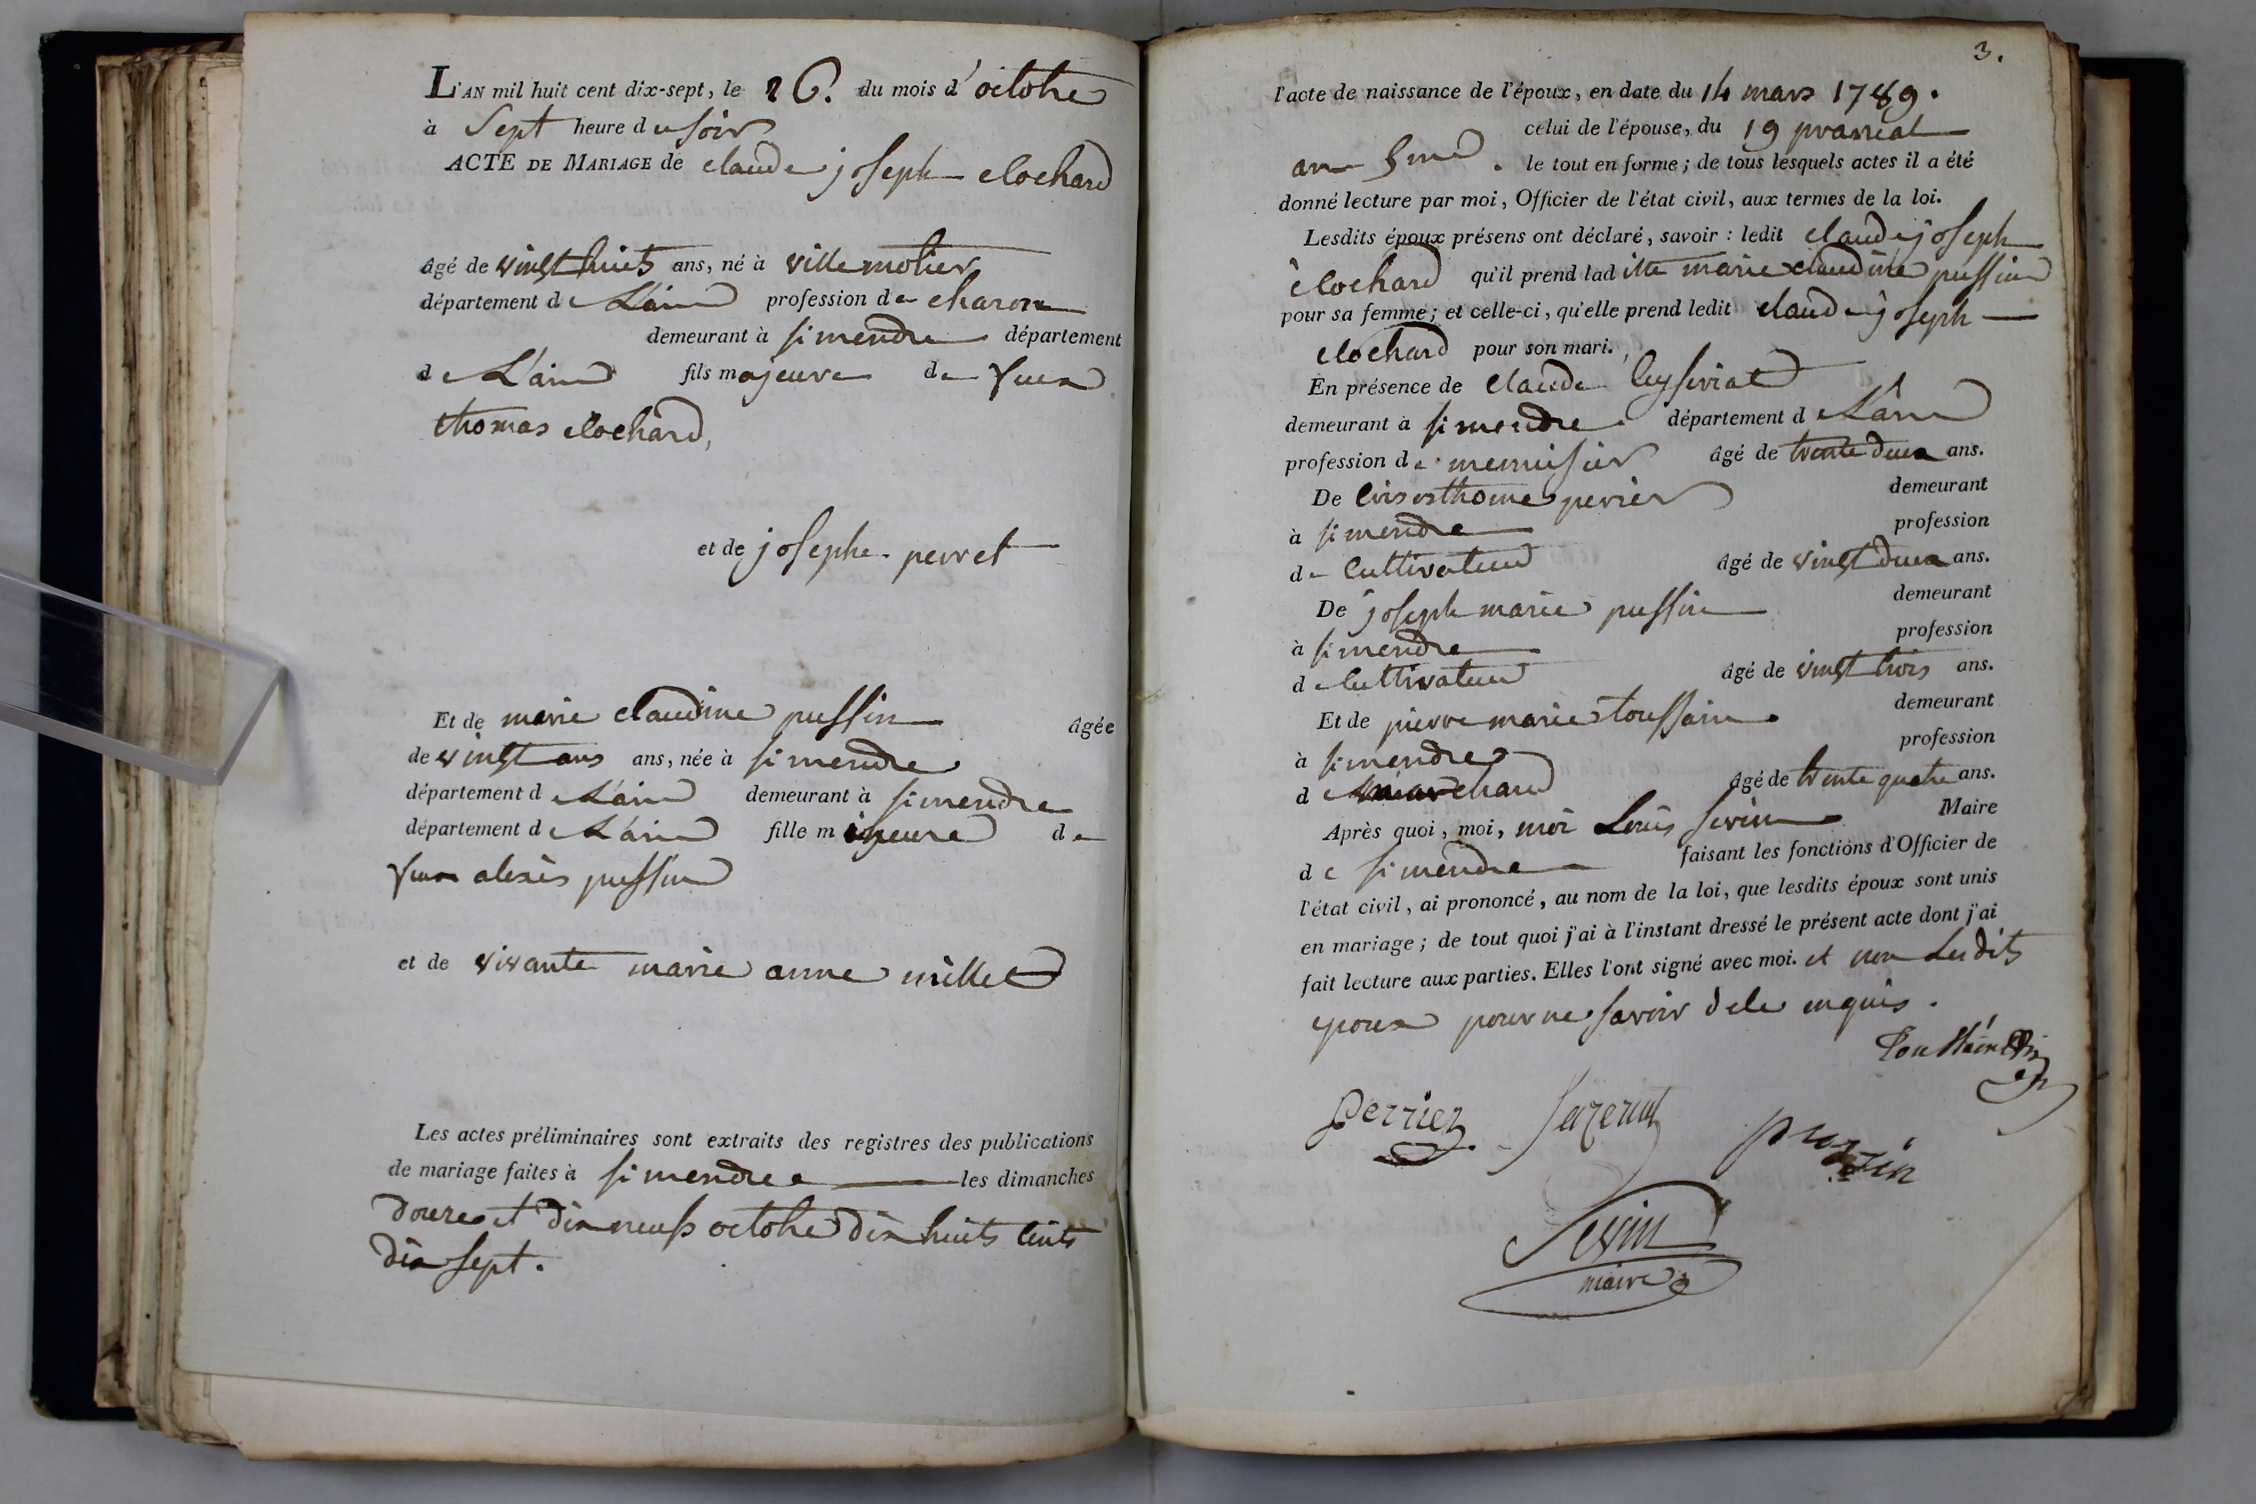 L'AN mil huit cent dix-sept, le 26. du mois d'octobre
à Sept heure du soir
ACTE DE MARIAGE de claude joseph clochard
âgé de vingt huits ans, né à villemotier
département de L'ain profession de charon
demeurant à simendre département
de L'ain fils majeure de feux
thomas clochard,
et de josephe perret
Et de marie claudine pussin âgée
de vingt ans ans, née à simendre
département de L'ain demeurant à simendre
département de L'ain fille mineure de
feux alexis pussin
et de vivante marie anne millet
Les actes préliminaires sont extraits des registres des publications
de mariage faites à simendre les dimanches
douze et dix neuf octobre dix huits cents
dix sept.
3.
l'acte de naissance de l'époux, en date du 14 mars 1789.
celui de l'épouse, du 19 prarreal
an 5me. le tout en forme; de tous lesquels actes il a été
donné lecture par moi, Officier de l'état civil, aux termes de la loi.
Lesdits époux présens ont déclaré, savoir : ledit claude joseph
clochard qu'il prend laditte marie claudine pussin
pour sa femme; et celle-ci, qu'elle prend ledit claude joseph
clochard pour son mari.,
En présence de claude
demeurant à simendre département de L'ain
profession de menuisier âgé de trente deux ans.
De perier demeurant
à simendre profession
de cultivateur âgé de vingt deux ans.
De joseph marie pussin demeurant
à simendre profession
de cultivateur âgé de vingt trois ans.
Et de pierre marie toussain demeurant
à simendre profession
de marchand âgé de trente quatre ans.
Après quoi, moi, moi Louis sevin Maire
de simendre faisant les fonctions d'Officier de
l'état civil, ai prononcé, au nom de la loi, que lesdits époux sont unis
en mariage; de tout quoi j'ai à l'instant dressé le présent acte dont j'ai
fait lecture aux parties. Elles l'ont signé avec moi. et non Lesdits
epoux pour ne savoir de ce enquis.
Perrier
Sevin
maire